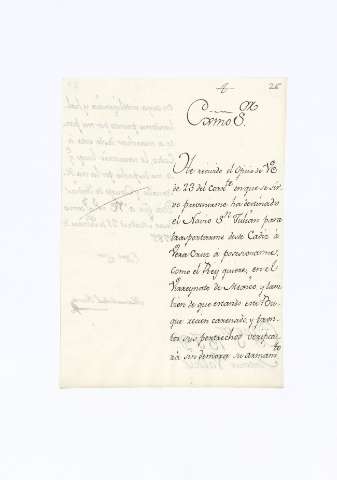 4
26
Exmo Sor
He recivido el Oficio de VE
de 23 del corrte en que se sir
ve prevenirme ha destinado
el Navio Sn Julian para
trasportarme desde Cadiz à
Vera Cruz à posesionarme,
como el Rey quiere, en el
Virreynato de Mexico, y tam
bien de que estando este Bu
que recien carenado, y pron
tos sus pertrechos verifica
rà sin demora su armamto